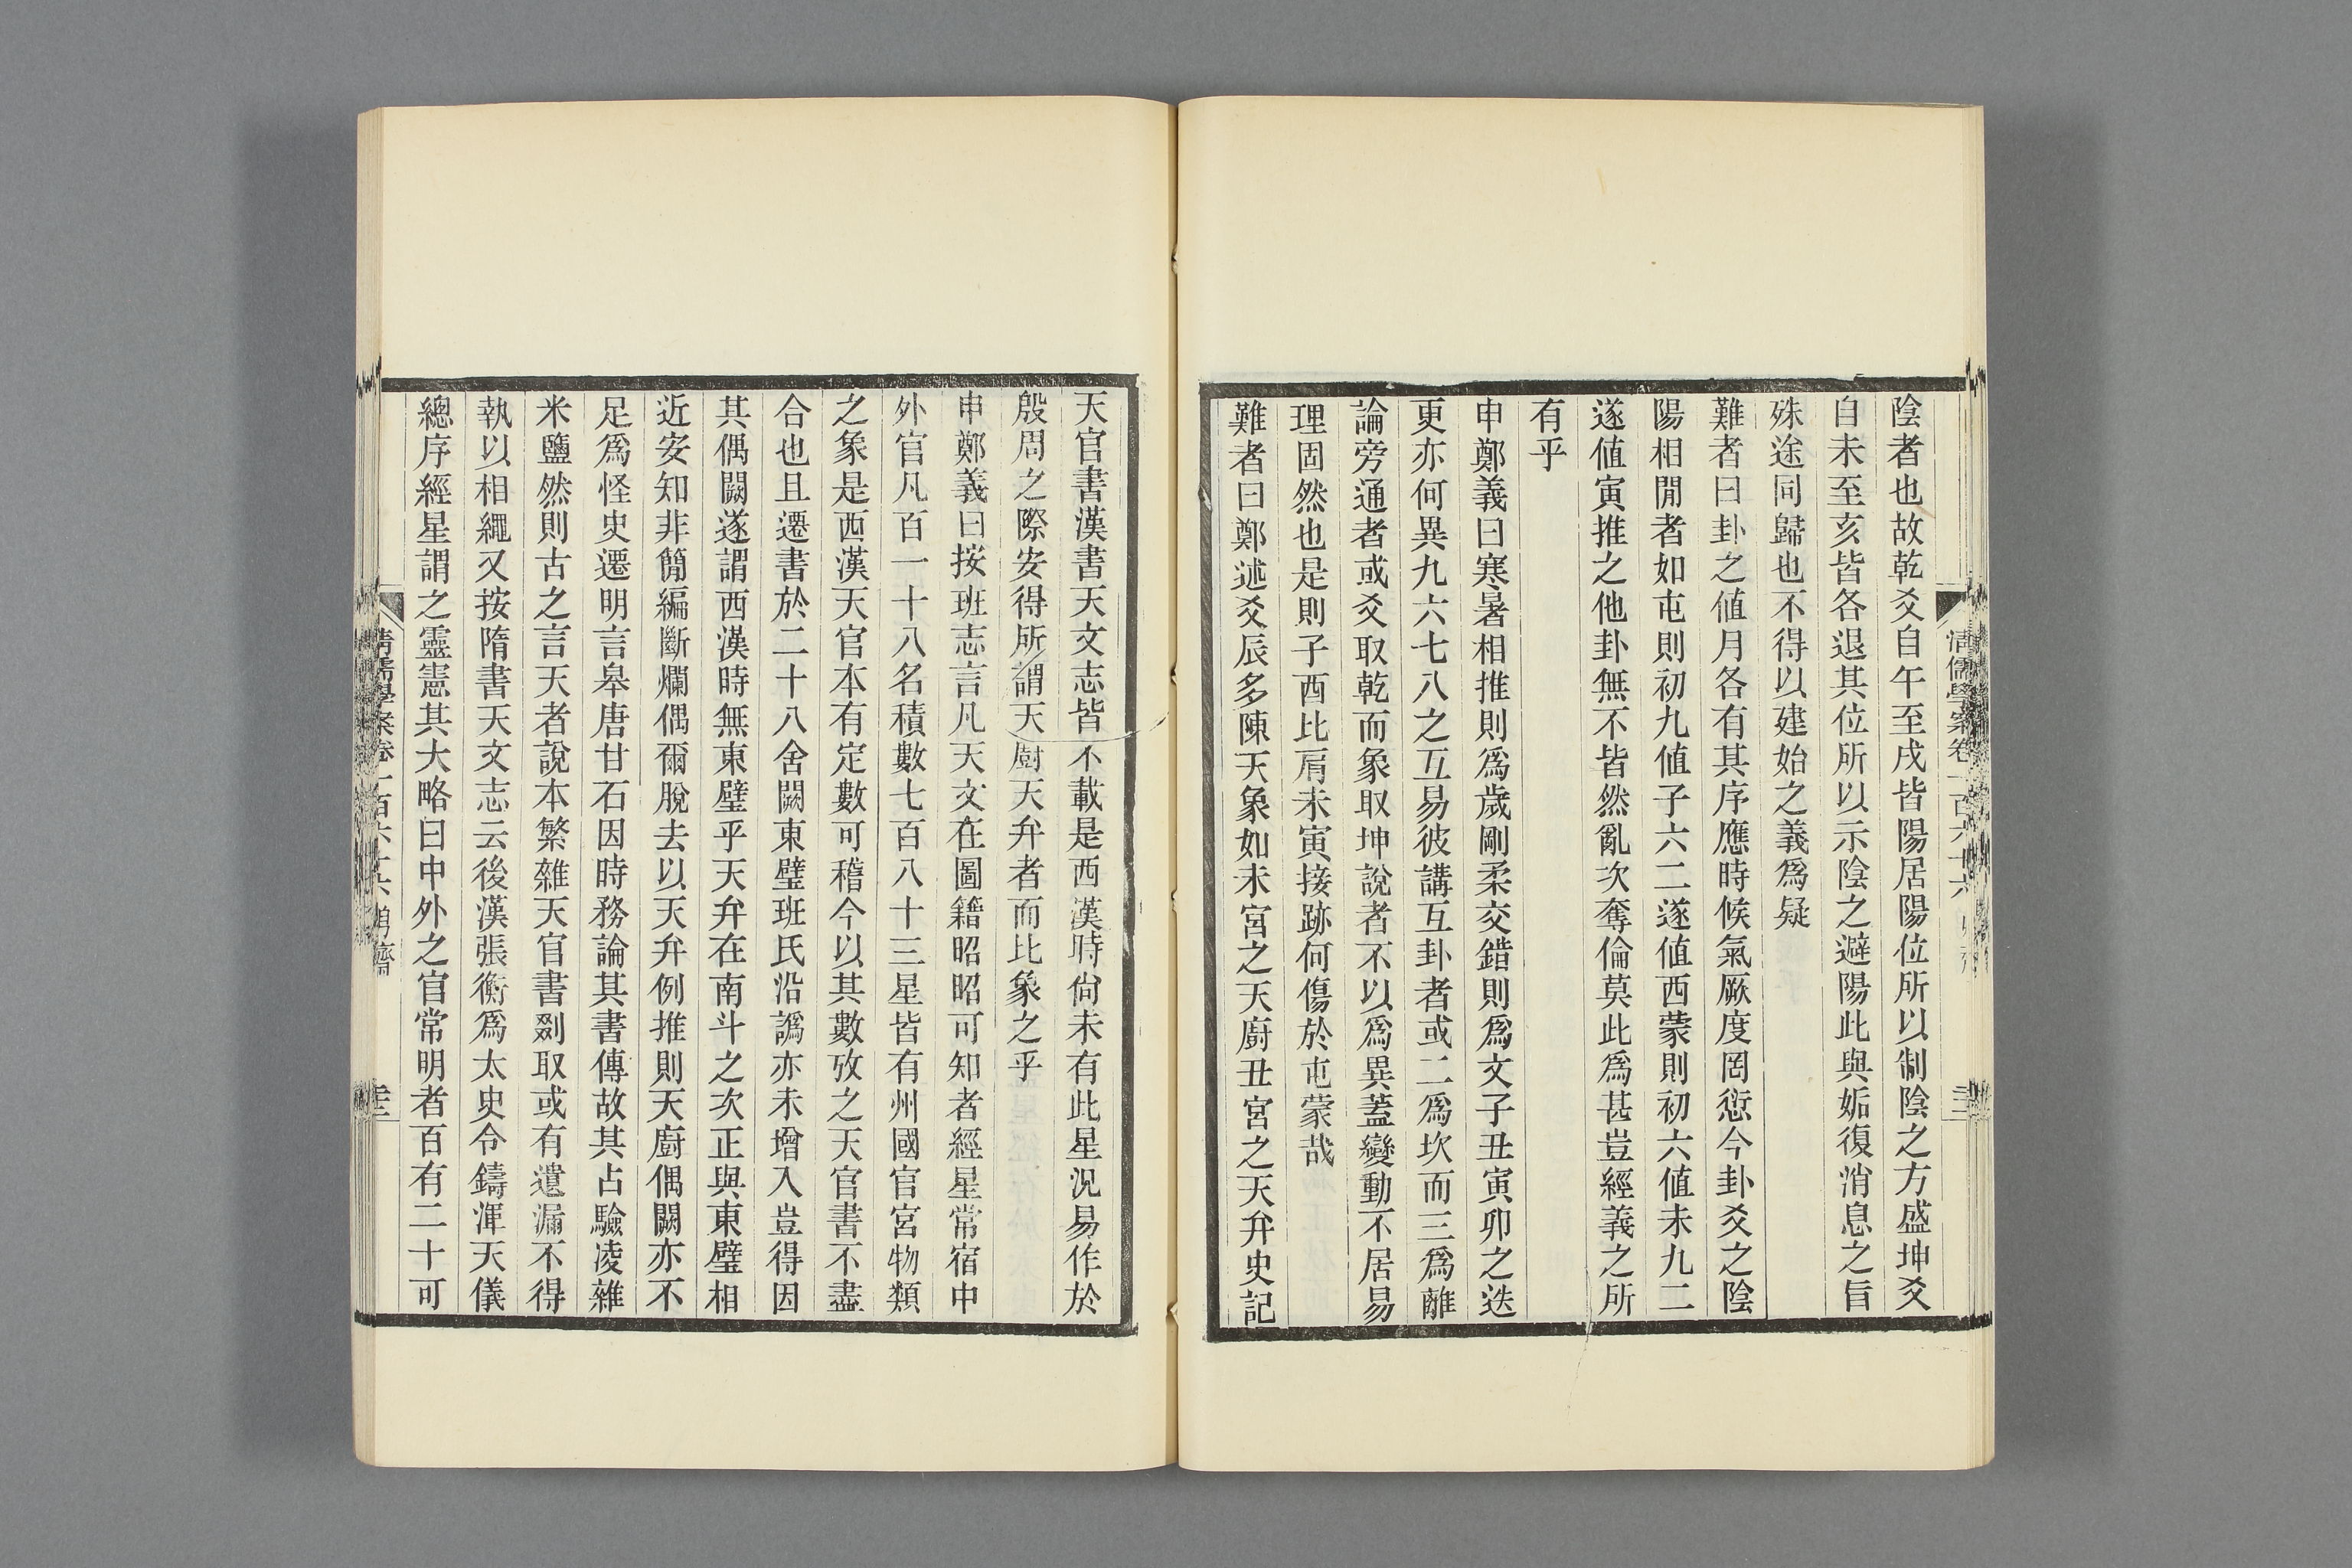 陰者也故乾爻自午至戌皆陽居陽位所以制陰之方盛坤爻
自未至亥皆各退其位所以示陰之避陽此與姤復消息之旨
殊途同歸也不得以建始之義爲疑
難者曰卦之値月各有其序應時候氣厥度罔愆今卦爻之陰
陽相閒者如屯則初九値子六二遂値酉蒙則初六値未九二
遂値寅推之他卦無不皆然亂次奪倫莫此爲甚豈經義之所
有乎
申鄭義曰寒暑相推則爲歲剛柔交錯則爲文子丑寅卯之迭
更亦何異九六七八之互易彼講互卦者或二爲坎而三爲離
論旁通者或爻取乾而象取坤說者不以爲異蓋變動不居易
理固然也是則子酉比肩未寅接跡何傷於屯蒙哉
難者曰鄭述爻辰多陳天象如未宮之天廚丑宮之天弁史記
天官書漢書天文志皆不載是西漢時尙未有此星況易作於
殷周之際安得所謂天廚天弁者而比象之乎
申鄭義曰按班志言凡天文在圖籍昭昭可知者經星常宿中
外官凡百一十八名積數七百八十三星皆有州國官宮物類
之象是西漢天官本有定數可稽今以其數攷之天官書不盡
合也且遷書於二十八舍闕東壁班氏沿譌亦未增入豈得因
其偶闕遂謂西漢時無東壁乎天弁在南斗之次正與東壁相
近安知非簡編斷爛偶爾脫去以天弁例推則天廚偶闕亦不
足爲怪史遷明言皋唐甘石因時務論其書傳故其占驗凌雜
米鹽然則古之言天者說本繁雜天官書剟取或有遺漏不得
執以相繩又按隋書天文志云後漢張衡爲太史令鑄渾天儀
總序經星謂之靈憲其大略曰中外之官常明者百有二十可
清儒學案卷一百六十六